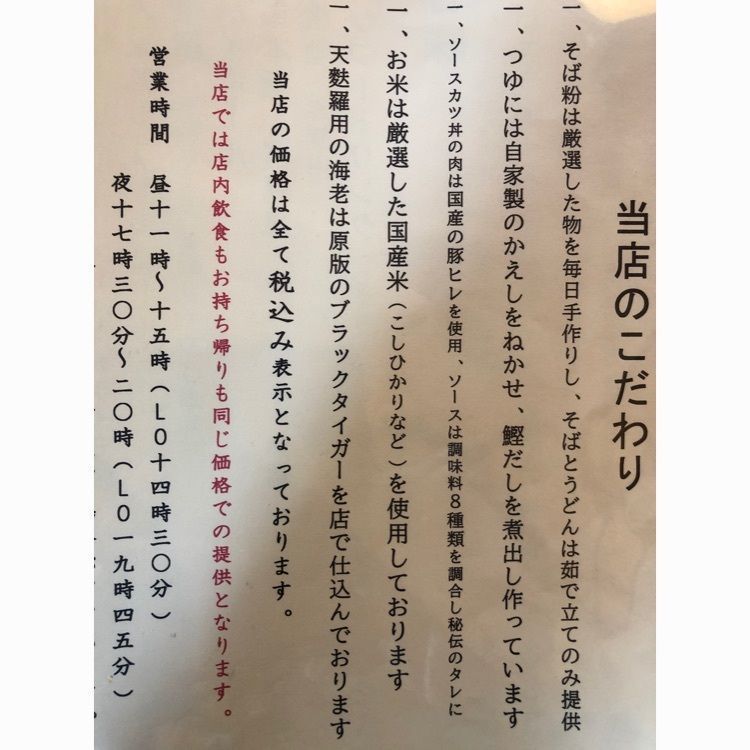 当店のこだわり
一、そば粉は厳選した物を毎日手作りし、そばとうどんは茹で立てのみ提供
一、つゆには自家製のかえしをねかせ、鰹だしを煮出し作っています
一、ソースカツ丼の肉は国産の豚ヒレを使用、ソースは調味料8種類を調合し秘伝のタレに
一、お米は厳選した国産米(こしひかりなど)を使用しております
一、天麩羅用の海老は原版のブラックタイガーを店で仕込んでおります
当店の価格は全て税込み表示となっております。
当店では店内飲食もお持ち帰りも同じ価格での提供となります。
営業時間 昼十一時～十五時(LO十四時三〇分)
夜十七時三〇分～二〇時(LO一九時四五分)